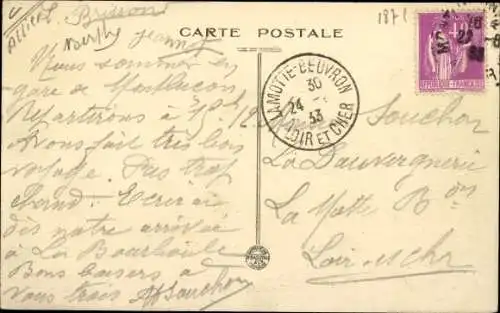 Allier
Brisson
CARTE POSTALE
1871
Jeanne
Nous sommes en
gare de Montluçon
Repartirons à 15h 12
Avons fait très bon
voyage. Pas trop
chaud. Ecrirai
dès notre arrivée
à La Bourboule
Bons baisers à
vous trois Souchon
LAMOTTE-BEUVRON
30
24
33
LOIR ET CHER
REPUBLIQUE FRANÇAISE
Souchon
La Dauvergnerie
La Motte Bon
Loir et Cher